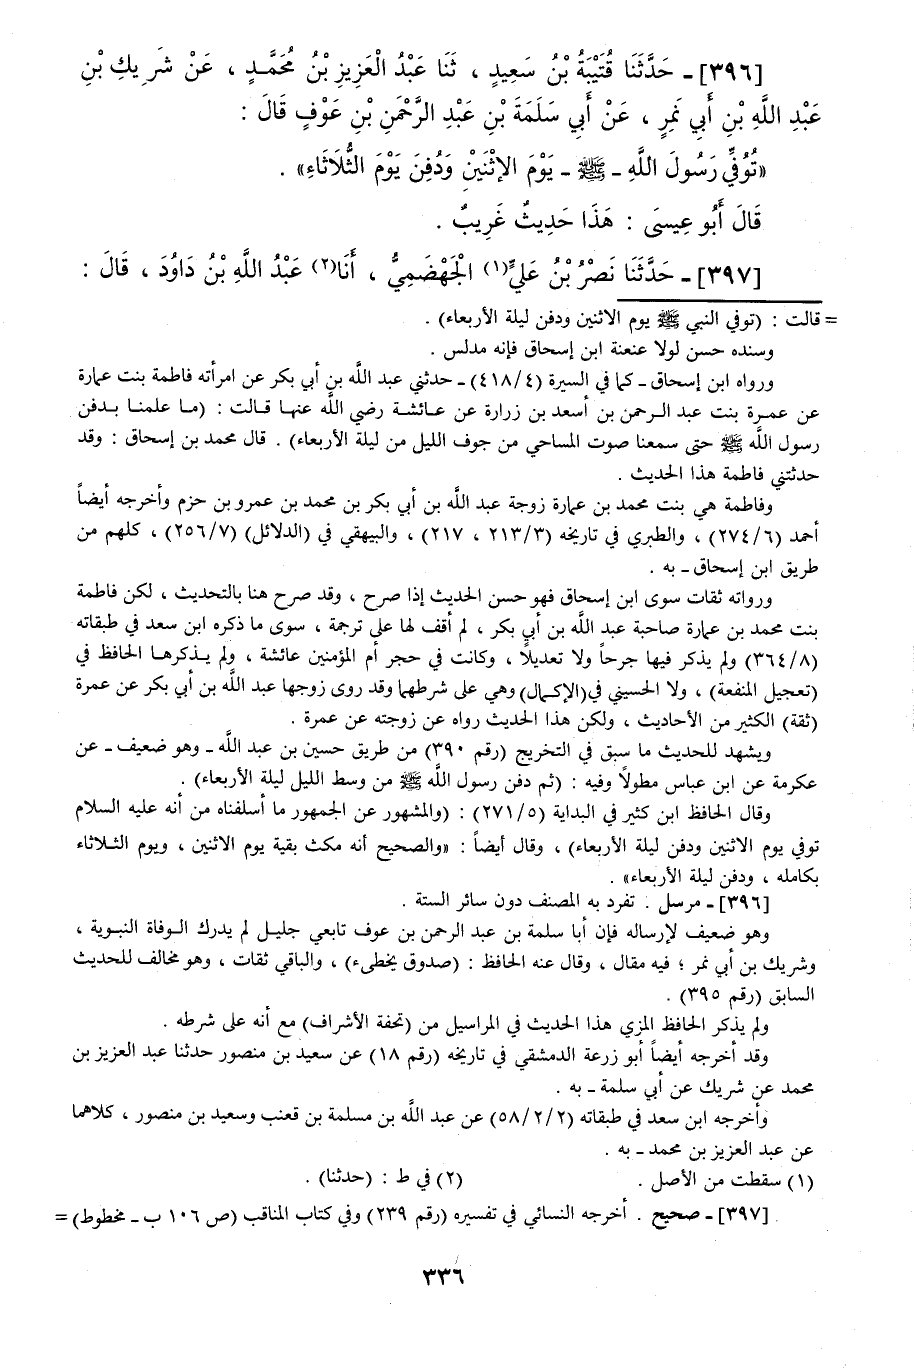 [٣٩٦] ـ حَدَّثَنَا قُتَيْبَةُ بْنُ سَعِيدٍ ، ثَنَا عَبْدُ الْعَزِيزِ بْنُ مُحَمَّدٍ ، عَنْ شَرِيكِ بْنِ
عَبْدِ اللَّهِ بْنِ أَبِي نَمِرٍ ، عَنْ أَبِي سَلَمَةَ بْنِ عَبْدِ الرَّحْمَنِ بْنِ عَوْفٍ قَالَ :
«تُوُفِّيَ رَسُولَ اللَّهِ ـ ﷺ ـ يَوْمَ الإِثْنَيْنْ وَدُفِنَ يَوْمَ الثُّلَاثَاءِ» .
قَالَ أَبُو عِيسَى : هَذَا حَدِيثٌ غَرِيبٌ .
[٣٩٧] ـ حَدَّثَنَا نَصْرُ بْنُ عَلِيٍّ(١) الْجَهْضَمِيُّ ، أَنَا(٢) عَبْدُ اللَّهِ بْنُ دَاوُدَ ، قَالَ :
= قالت : (توفي النبي ﷺ يوم الاثنين ودفن ليلة الأربعاء) .
وسنده حسن لولا عنعنة ابن إسحاق فإنه مدلس .
ورواه ابن إسحاق ـ كما في السيرة (٤١٨/٤) ـ حدثني عبد اللَّه بن أبي بكر عن امرأته فاطمة بنت عمارة
عن عمرة بنت عبد الرحمن بن أسعد بن زرارة عن عائشة رضي اللَّه عنها قالت : (ما علمنا بدفن
رسول اللَّه ﷺ حتى سمعنا صوت المساحي من جوف الليل من ليلة الأربعاء) . قال محمد بن إسحاق : وقد
حدثتني فاطمة هذا الحديث .
وفاطمة هي بنت محمد بن عمارة زوجة عبد اللَّه بن أبي بكر بن محمد بن عمرو بن حزم وأخرجه أيضاً
أحمد (٢٧٤/٦) ، والطبري في تاريخه (٢١٣/٣ ، ٢١٧) ، والبيهقي في (الدلائل) (٢٥٦/٧) ، كلهم من
طريق ابن إسحاق ـ به .
ورواته ثقات سوى ابن إسحاق فهو حسن الحديث إذا صرح ، وقد صرح هنا بالتحديث ، لكن فاطمة
بنت محمد بن عمارة صاحبة عبد اللَّه بن أبي بكر ، لم أقف لها على ترجمة ، سوى ما ذكره ابن سعد في طبقاته
(٣٦٤/٨) ولم يذكر فيها جرحاً ولا تعديلاً ، وكانت في حجر أم المؤمنين عائشة ، ولم يذكرها الحافظ في
(تعجيل المنفعة) ، ولا الحسيني في (الإكمال) وهي على شرطهما وقد روى زوجها عبد اللَّه بن أبي بكر عن عمرة
(ثقة) الكثير من الأحاديث ، ولكن هذا الحديث رواه عن زوجته عن عمرة .
ويشهد للحديث ما سبق في التخريج (رقم ٣٩٠) من طريق حسين بن عبد اللَّه ـ وهو ضعيف ـ عن
عكرمة عن ابن عباس مطولاً وفيه : (ثم دفن رسول اللَّه ﷺ من وسط الليل ليلة الأربعاء) .
وقال الحافظ ابن كثير في البداية (٢٧١/٥) : (والمشهور عن الجمهور ما أسلفناه من أنه عليه السلام
توفي يوم الاثنين ودفن ليلة الأربعاء) ، وقال أيضاً : «والصحيح أنه مكث بقية يوم الاثنين ، ويوم الثلاثاء
بكامله ، ودفن ليلة الأربعاء» .
[٣٩٦] ـ مرسل . تفرد به المصنف دون سائر الستة .
وهو ضعيف لإرساله فإن أبا سلمة بن عبد الرحمن بن عوف تابعي جليل لم يدرك الوفاة النبوية ،
وشريك بن أبي نمر ؛ فيه مقال ، وقال عنه الحافظ : (صدوق يخطىء) ، والباقي ثقات ، وهو مخالف للحديث
السابق (رقم ٣٩٥) .
ولم يذكر الحافظ المزي هذا الحديث في المراسيل من (تحفة الأشراف) مع أنه على شرطه .
وقد أخرجه أيضاً أبو زرعة الدمشقي في تاريخه (رقم ١٨) عن سعيد بن منصور حدثنا عبد العزيز بن
محمد عن شريك عن أبي سلمة ـ به .
وأخرجه ابن سعد في طبقاته (٥٨/٢/٢) عن عبد اللَّه بن مسلمة بن قعنب وسعيد بن منصور ، كلاهما
عن عبد العزيز بن محمد ـ به .
(١) سقطت من الأصل . (٢) في ط : (حدثنا) .
[٣٩٧] ـ صحيح . أخرجه النسائي في تفسيره (رقم ٢٣٩) وفي كتاب المناقب (ص ١٠٦ ب ـ مخطوط) =
٣٣٦